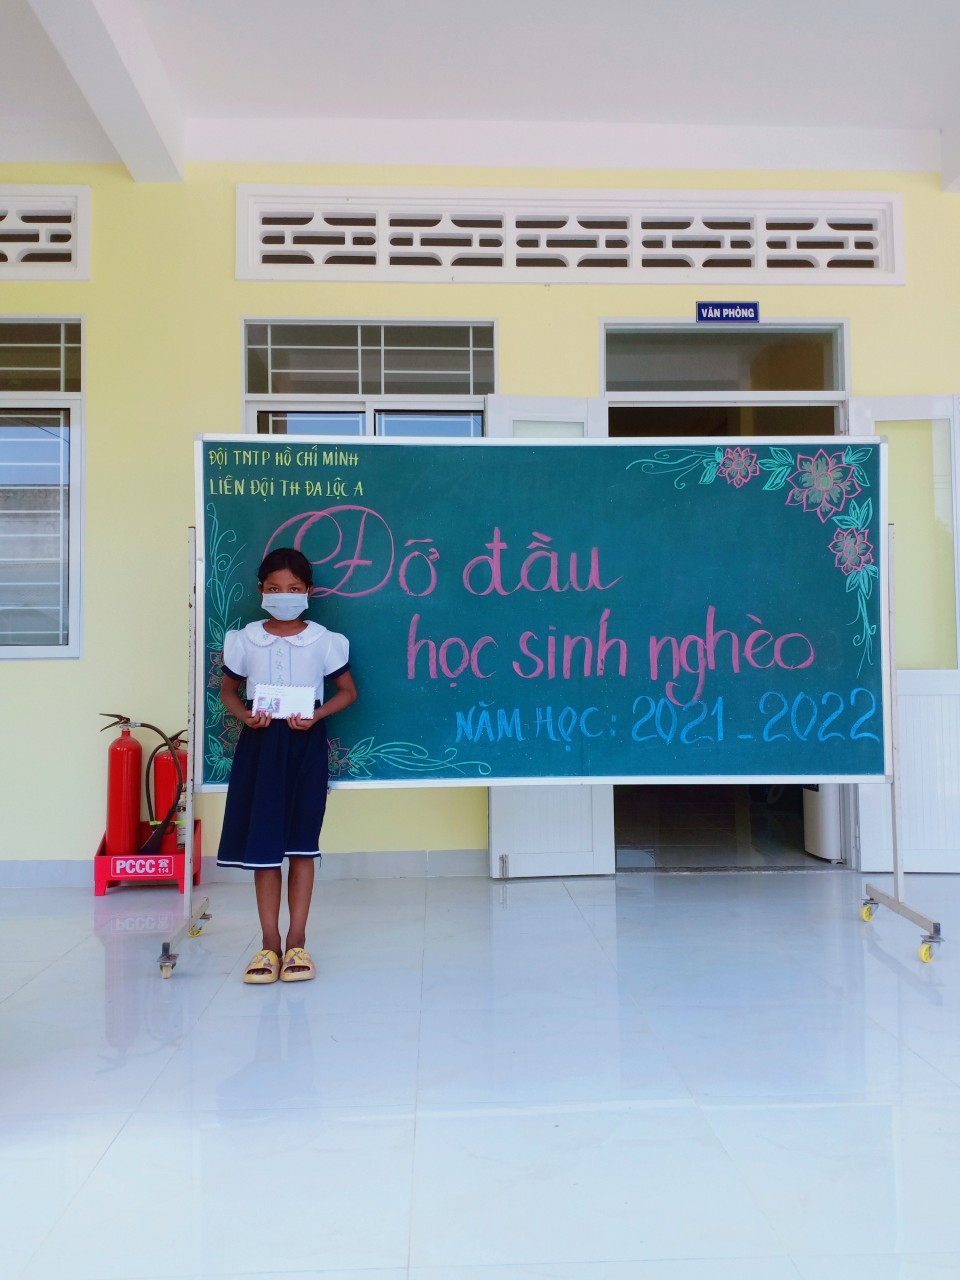 VĂN PHÒNG
ĐỘI TNTP HỒ CHÍ MINH
LIÊN ĐỘI TH ĐA LỘC A
Đỡ đầu
học sinh nghèo
NĂM HỌC: 2021_2022
PCCC ☎
114